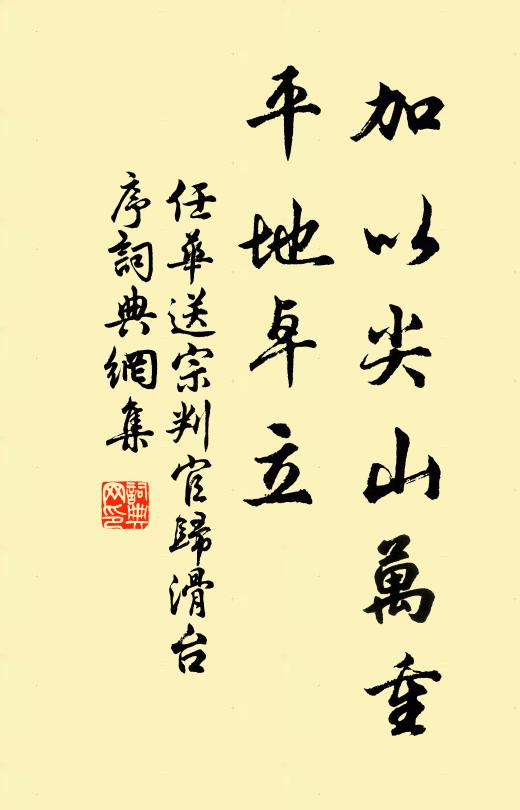 加以尖山萬重
平地卓立
任華送宗判官歸滑台
序詞典網集
詞典
网印